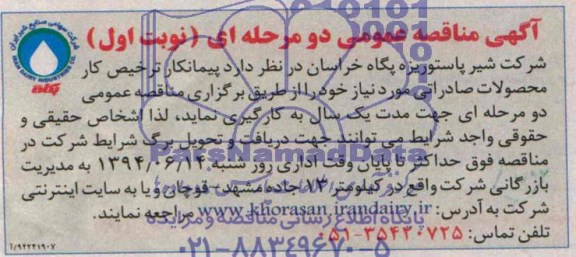 آگهی مناقصه عمومی دو مرحله ای (نوبت اول)
شرکت شیر پاستوریزه پگاه خراسان در نظر دارد پیمانکار ترخیص کار
محصولات صادراتی مورد نیاز خود را از طریق برگزاری مناقصه عمومی
دو مرحله ای جهت مدت یک سال به کارگیری نماید، لذا اشخاص حقیقی و
حقوقی واجد شرایط می توانند جهت دریافت و تحویل برگ شرایط شرکت در
مناقصه فوق حداکثر تا پایان وقت اداری روز شنبه ۱۳۹۴/۰۶/۱۴ به مدیریت
بازرگانی شرکت واقع در کیلومتر ۱۳ جاده مشهد - قوچان و یا به سایت اینترنتی
شرکت به آدرس: www.khorasan.irandairy.ir مراجعه نمایند.
تلفن تماس: ۳۵۴۲۰۷۲۵-۰۵۱
شرکت سهامی صنایع شیر ایران
IRAN DAIRY INDUSTRIES CO.
پگاه
۱/۹۴۲۴۱۹۰۷
ParsNamadData
پایگاه اطلاع رسانی مناقصه و مزایده
۰۲۱-۸۸۳۴۹۶۷۰-۵